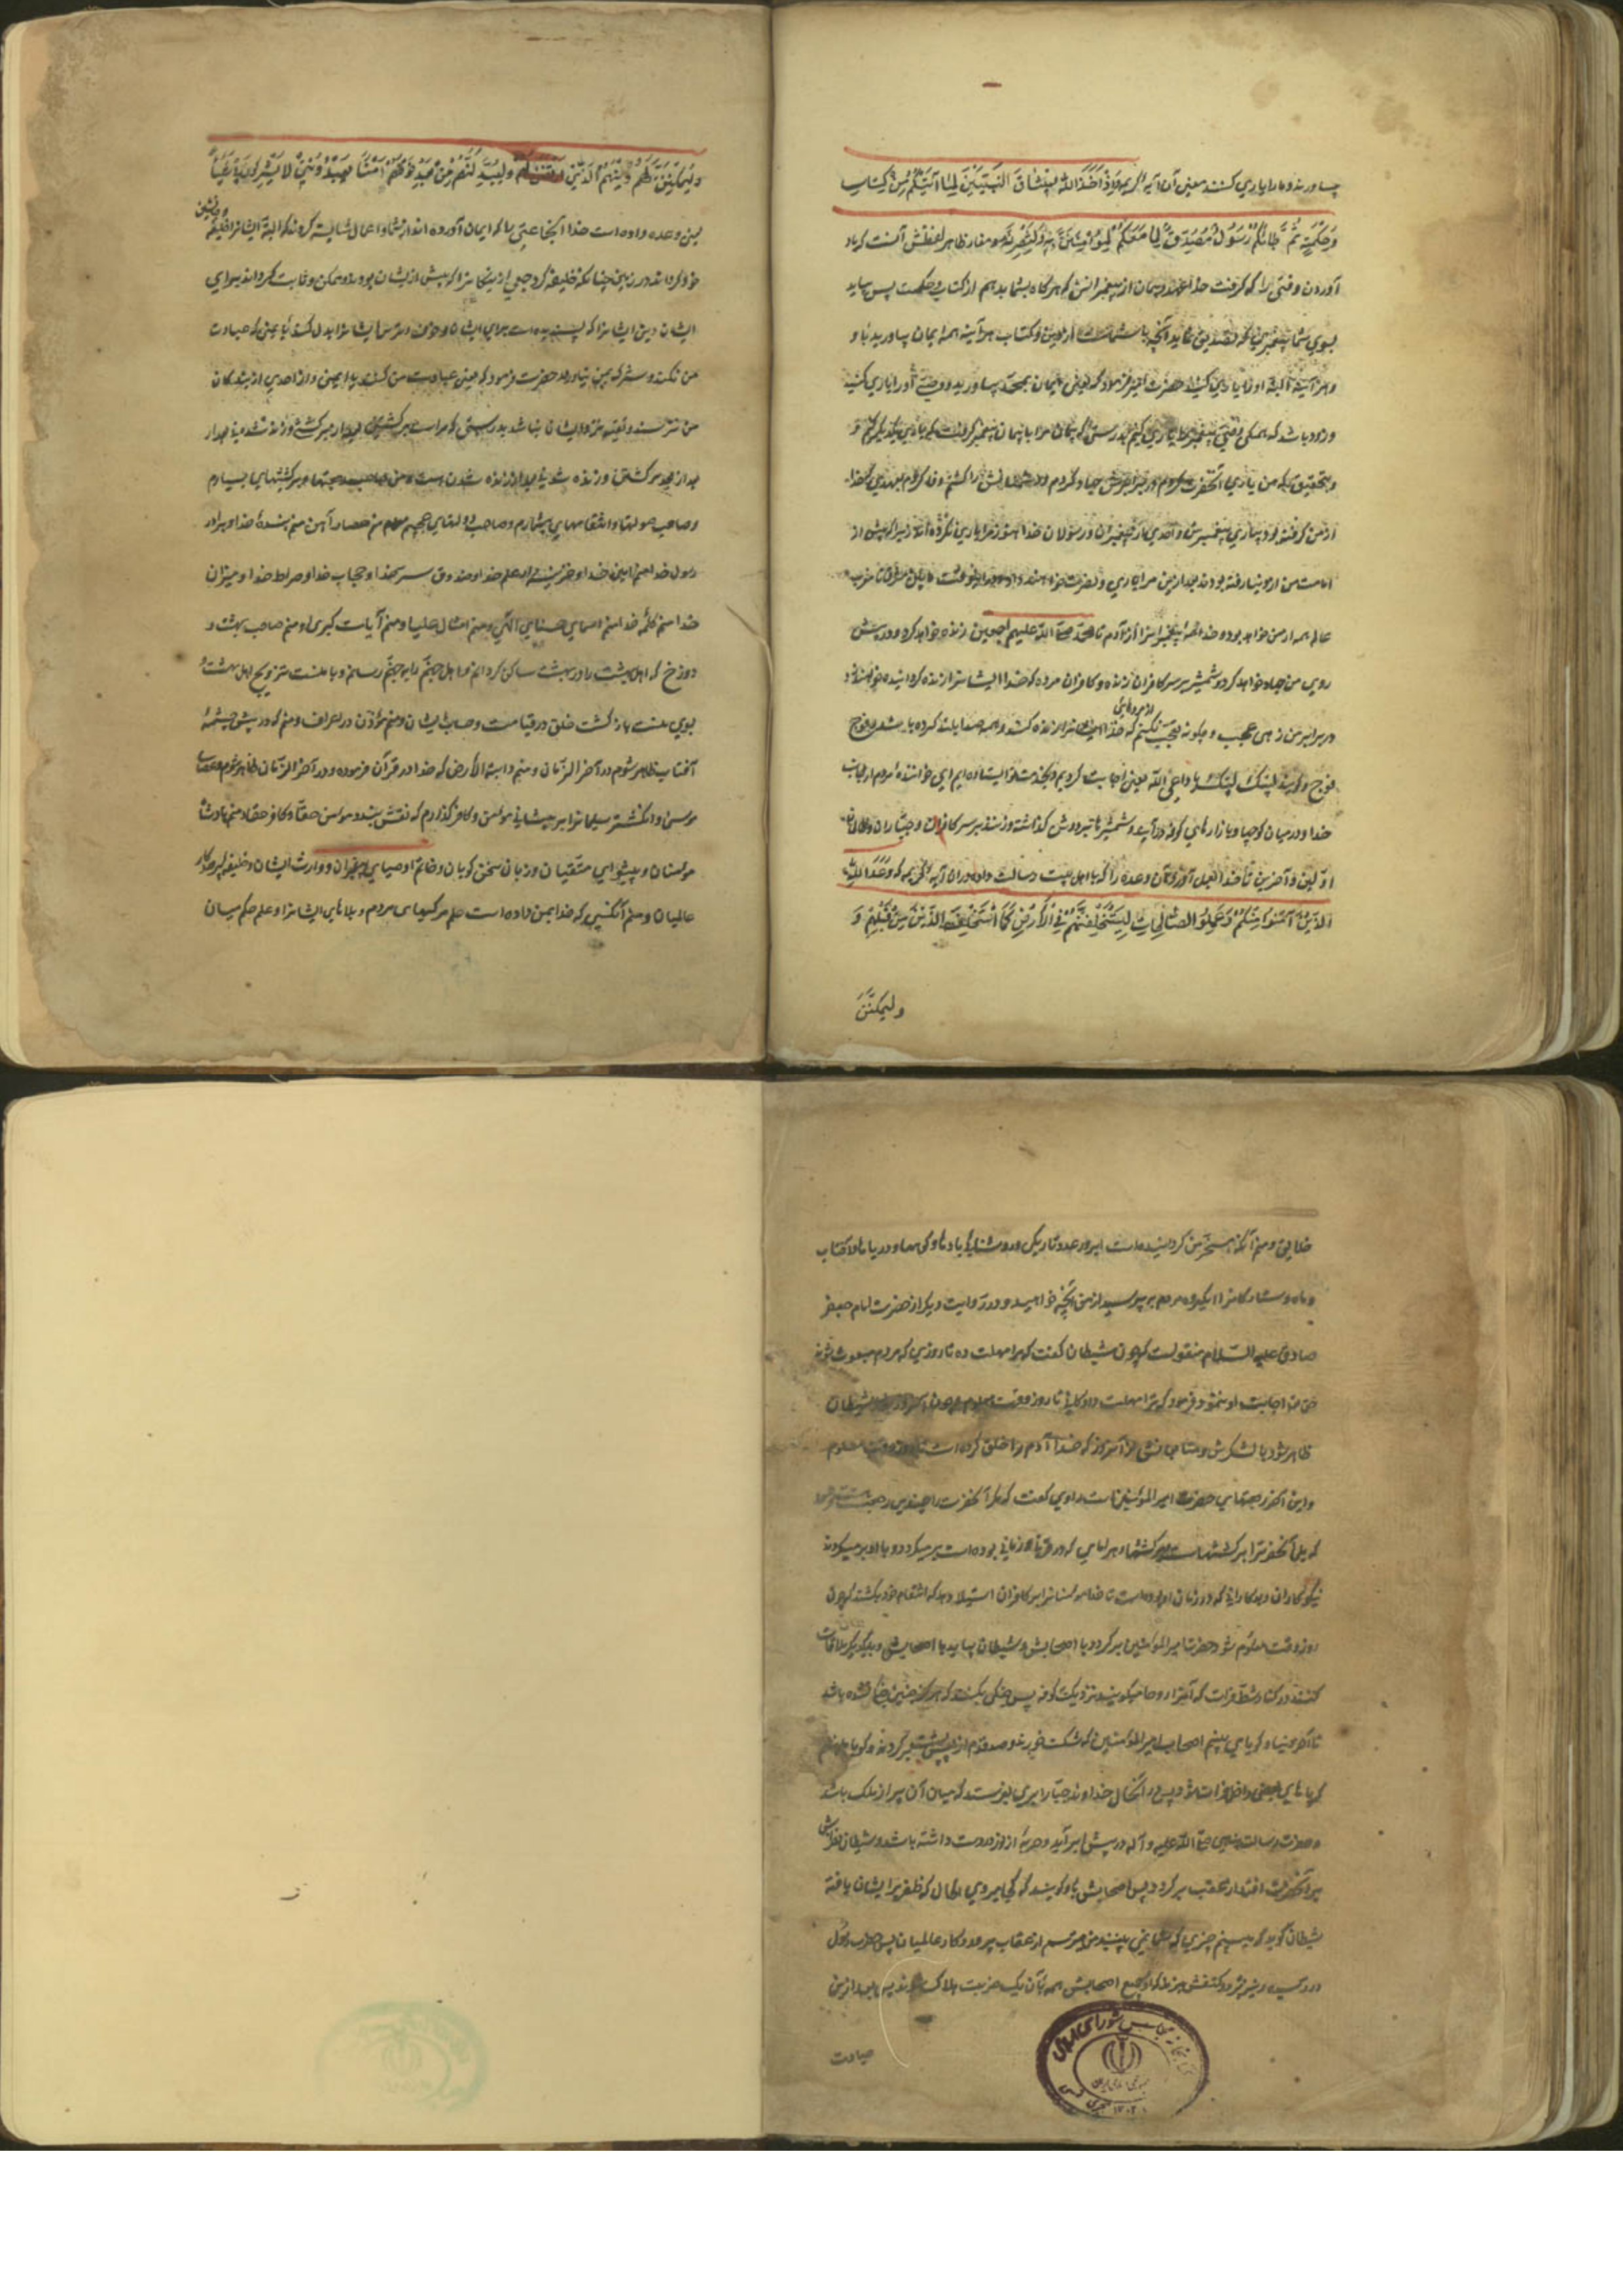 بیاورند و ما را یاری کنند معنی آن آیهٔ کریمه وَاِذْ اَخَذَ اللّٰهُ میثاقَ النَّبِیّینَ لَما آتَیْتُکُمْ مِنْ کِتابٍ
وَحِکْمَةٍ ثُمَّ جائَکُمْ رَسُولٌ مُصَدِّقٌ لِما مَعَکُمْ لَتُؤْمِنُنَّ بِهِ وَلَتَنْصُرُنَّهُ و مفاد ظاهر لفظش آنست که یاد
آورید وقتی را که گرفت خدا عهد و پیمان از پیغمبرانش که هرگاه بشما بدهم از کتاب و حکمت پس بیاید
بسوی شما پیغمبری که تصدیق نماید آنچه با شماست از دین و کتاب هرآینه همه ایمان بیاورید باو
و هرآینه البته او را یاری کنید حضرت امیر فرمود که یعنی ایمان بمحمد بیاورید و وصی او را یاری کنید
و زود باشد که همگی وصی پیغمبر را یاری کنیم بدرستی که پیمان مرا با پیمان پیغمبر گرفت که یاری یکدیگر کنیم و
و بتحقیق که من یاری آنحضرت کردم و در پیش رویش جهاد کردم و دشمنانش را کشتم وفا کردم بعهدی که خدا
از من گرفته بود بیاری پیغمبرش و احدی از پیغمبران و رسولان خدا هنوز مرا یاری نکرده‌اند زیرا که پیش از
امامت من از دنیا رفته بودند بعد ازین مرا یاری و نصرت خواهند داد
عالم همه از من خواهد بود و خدا همه پیغمبران را از آدم تا محمد صلی اللّٰه علیهم اجمعین زنده خواهد کرد و در پیش
روی من جهاد خواهد کرد و شمشیر بر سر کافران زنده و کافران مرده که خدا ایشان را زنده گردانیده خواهند زد
در برابر من زهی عجب و چگونه تعجب نکنم که خدا ایشان را زنده کند و همه صدا بلند کرده باشند فوج
از مردهای
فوج و گویند لبیک لبیک یا داعی اللّٰه یعنی اجابت کردیم و بخدمت تو ایستاده‌ایم ای خواننده مردم از جانب
خدا و در میان کوچها و بازارهای کوفه درآیند و شمشیرها بر دوش گذاشته و زنند بر سر کافران و جباران
اولین و آخرین تا خدا بعمل آورد آن وعده را که با اهل بیت رسالت داده در آن آیهٔ کریمه که وَعَدَ اللّٰهُ
الَّذینَ آمَنُوا مِنْکُمْ وَعَمِلُوا الصّالِحاتِ لَیَسْتَخْلِفَنَّهُمْ فِی الْاَرْضِ کَمَا اسْتَخْلَفَ الَّذینَ مِنْ قَبْلِهِمْ وَ
ولیمکنن
وَلَیُمَکِّنَنَّ لَهُمْ دینَهُمُ الَّذِی ارْتَضٰی لَهُمْ وَلَیُبَدِّلَنَّهُمْ مِنْ بَعْدِ خَوْفِهِمْ اَمْنًا یَعْبُدُونَنی لا یُشْرِکُونَ بی شَیْئًا
یعنی وعده داده است خدا آن جماعتی را که ایمان آورده‌اند از شما و اعمال شایسته کردند که البته ایشان را خلیفه
و جانشین
خود گرداند در زمین چنانکه خلیفه گردانید جمعی را که پیش از ایشان بودند و ممکن و ثابت گرداند برای
ایشان دین ایشان را که پسندیده است برای ایشان و خوف و ترس ایشان را بدل کند بایمنی که عبادت
من نکنند و شرک بمن نیاورند حضرت فرمود که یعنی عبادت من کنند با ایمنی و از احدی از بندگان
من نترسند و تقیه نزد ایشان نباشد بدرستی که مراست برگشتن بعد از برگشتن و زنده شدن بعد از
بعد از برگشتن و زنده شدن بعد از زنده شدن منم صاحب رجعتها و برگشتنهای بسیار
و صاحب صولتها و انتقامهای بیشمارم و صاحب دولتهای عجیب منم حصار آهن منم بندهٔ خدا و برادر
رسول خدا منم امین خدا و خزینه‌دار علم خدا و صندوق سر خدا و حجاب خدا و صراط خدا و میزان
خدا منم کلمهٔ خدا منم اسمای حسنای الهی و منم امثال علیا و منم آیات کبری و منم صاحب بهشت و
دوزخ که اهل بهشت را در بهشت ساکن گردانم و اهل جهنم را بجهنم رسانم و با منست تزویج اهل بهشت و
بسوی منست بازگشت خلق در قیامت و حساب ایشان و منم مؤذن در اعراف و منم که در پیش چشمهٔ
آفتاب ظاهر شوم در آخر الزمان و منم دابة الارض که خدا در قرآن فرموده و در آخر الزمان ظاهر شوم و عصای
موسی و انگشتر سلیمان را بر پیشانی مؤمن و کافر گذارم که نقش بندد مؤمن حقا و کافر حقا و منم پادشاه
مؤمنان و پیشوای متقیان و زبان سخن‌گویان و خاتم اوصیای پیغمبران و وارث ایشان و خلیفهٔ پروردگار
عالمیان و منم آنکسی که خدا بمن داده است علم مرگهای مردم و بلاهای ایشان را و علم حکم میان
خلایق و منم آنکه مسخر من گردانیده است ابر و رعد و تاریکی و روشنایی و بادها و کوهها و دریاها و آفتاب
و ماه و ستارگان را ای گروه مردم بپرسید از من آنچه خواهید و در روایت دیگر از حضرت امام جعفر
صادق علیه السّلام منقولست که چون شیطان گفت که مرا مهلت ده تا روزی که مردم مبعوث شوند
حق تعالی اجابت او ننمود فرمود که ترا مهلت دادم تا روز وقت معلوم چون آنروز شود شیطان
ظاهر شود با لشکرش و متابعانش از آنروز که خدا آدم را خلق کرده است تا روز وقت معلوم
و این آخر رجعتهای حضرت امیر المؤمنین است راوی گفت که مگر آنحضرت را چندین رجعت
که بلی آنحضرت را برگشتنهاست و برگشتنها و هر امامی که در قرن و زمانی بوده است برمیگردد و با او برمیگردند
نیکوکاران و بدکارانی که در زمان او بوده‌است تا خدا مومنان را بر کافران استیلا دهد که انتقام خود بکشند که چون
روز وقت معلوم شود حضرت امیر المؤمنین برگردد با اصحابش و شیطان بیاید با اصحابش و بیکدیگر ملاقات
کنند در کنار شط فرات که آنرا روحا میگویند نزدیک کوفه پس جنگی بکنند که هرگز چنین جنگ نشده باشد
تا آخر دنیا و گویا می‌بینم اصحاب امیر المؤمنین را که شکست خورند و صد قدم از پس پشت برگردند و گویا می‌بینم
که پاهای بعضی داخل فرات شود پس در آنحال خداوند جبار ابری بفرستد که میان آن پر از ملک باشد
و حضرت رسالت‌پناهی صلی اللّٰه علیه و آله در پیش ابر آید و حربهٔ از نور در دست داشته باشد و شیطان نظرش
بر آنحضرت افتد از عقب برگردد پس اصحابش باو گویند که کجا میروی الحال که ظفر بر ایشان یافتهٔ
شیطان گوید که می‌بینم چیزی که شما نمی‌بینید من میترسم از عقاب پروردگار عالمیان پس حضرت رسول
در رسد و در میان دو کتفش حربهٔ زند که او و جمیع اصحابش همه بآن یک ضربت هلاک شوند پس بعد ازین
عبادت